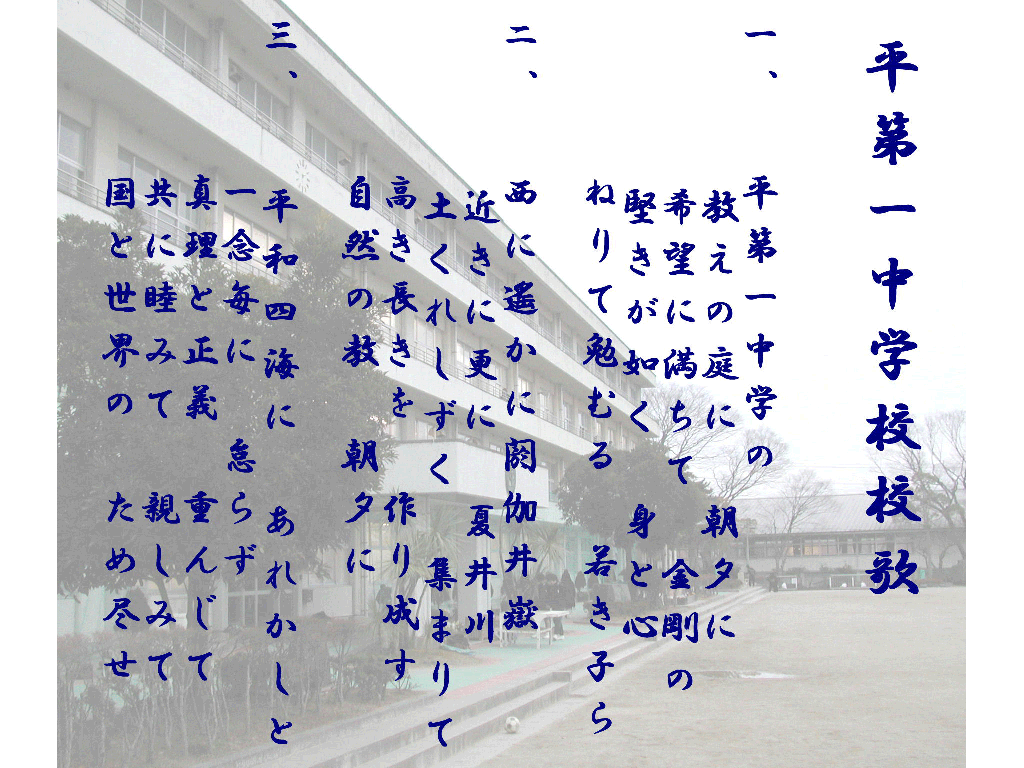 平第一中学校校歌
一、
平第一中学の
教えの庭に 朝夕に
希望に満ちて 金剛の
堅きが如く 身と心
ねりて勉むる 若き子ら
二、
西に遥かに 閼伽井嶽
近きに更に 夏井川
土くれしずく 集まりて
高き長きを 作り成す
自然の教 朝夕に
三、
平和四海に あれかしと
一念毎に 怠らず
真理と正義 重んじて
共に睦みて 親しみて
国と世界の ため尽せ